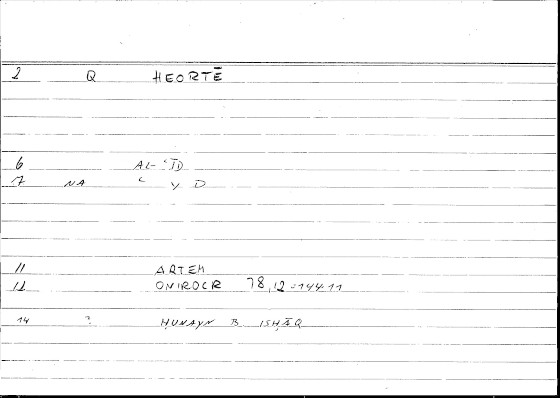 2 Q HEORTĒ
6 AL-ʿĪD
7 NA ʿ Y D
11 ARTEM
12 ONIROCR 78,12=144.11
14 ? ḤUNAYN B ISḤĀQ